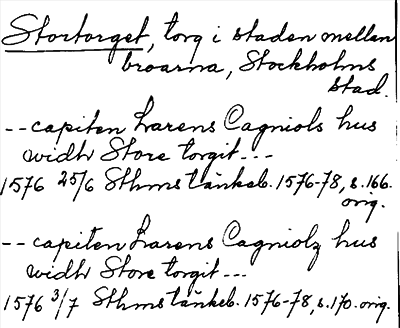 Stortorget, torg i staden mellan
broarna, Stockholms
stad.
-- capiten Larens Cagniols hus
widh Store torgit ---
1576 25/6 Sthms tänkeb. 1576-78, s. 166.
orig.
-- capiten Larens Cagniolz hus
widh Store torgit ---
1576 3/7 Sthms tänkeb. 1576-78, s. 170. orig.